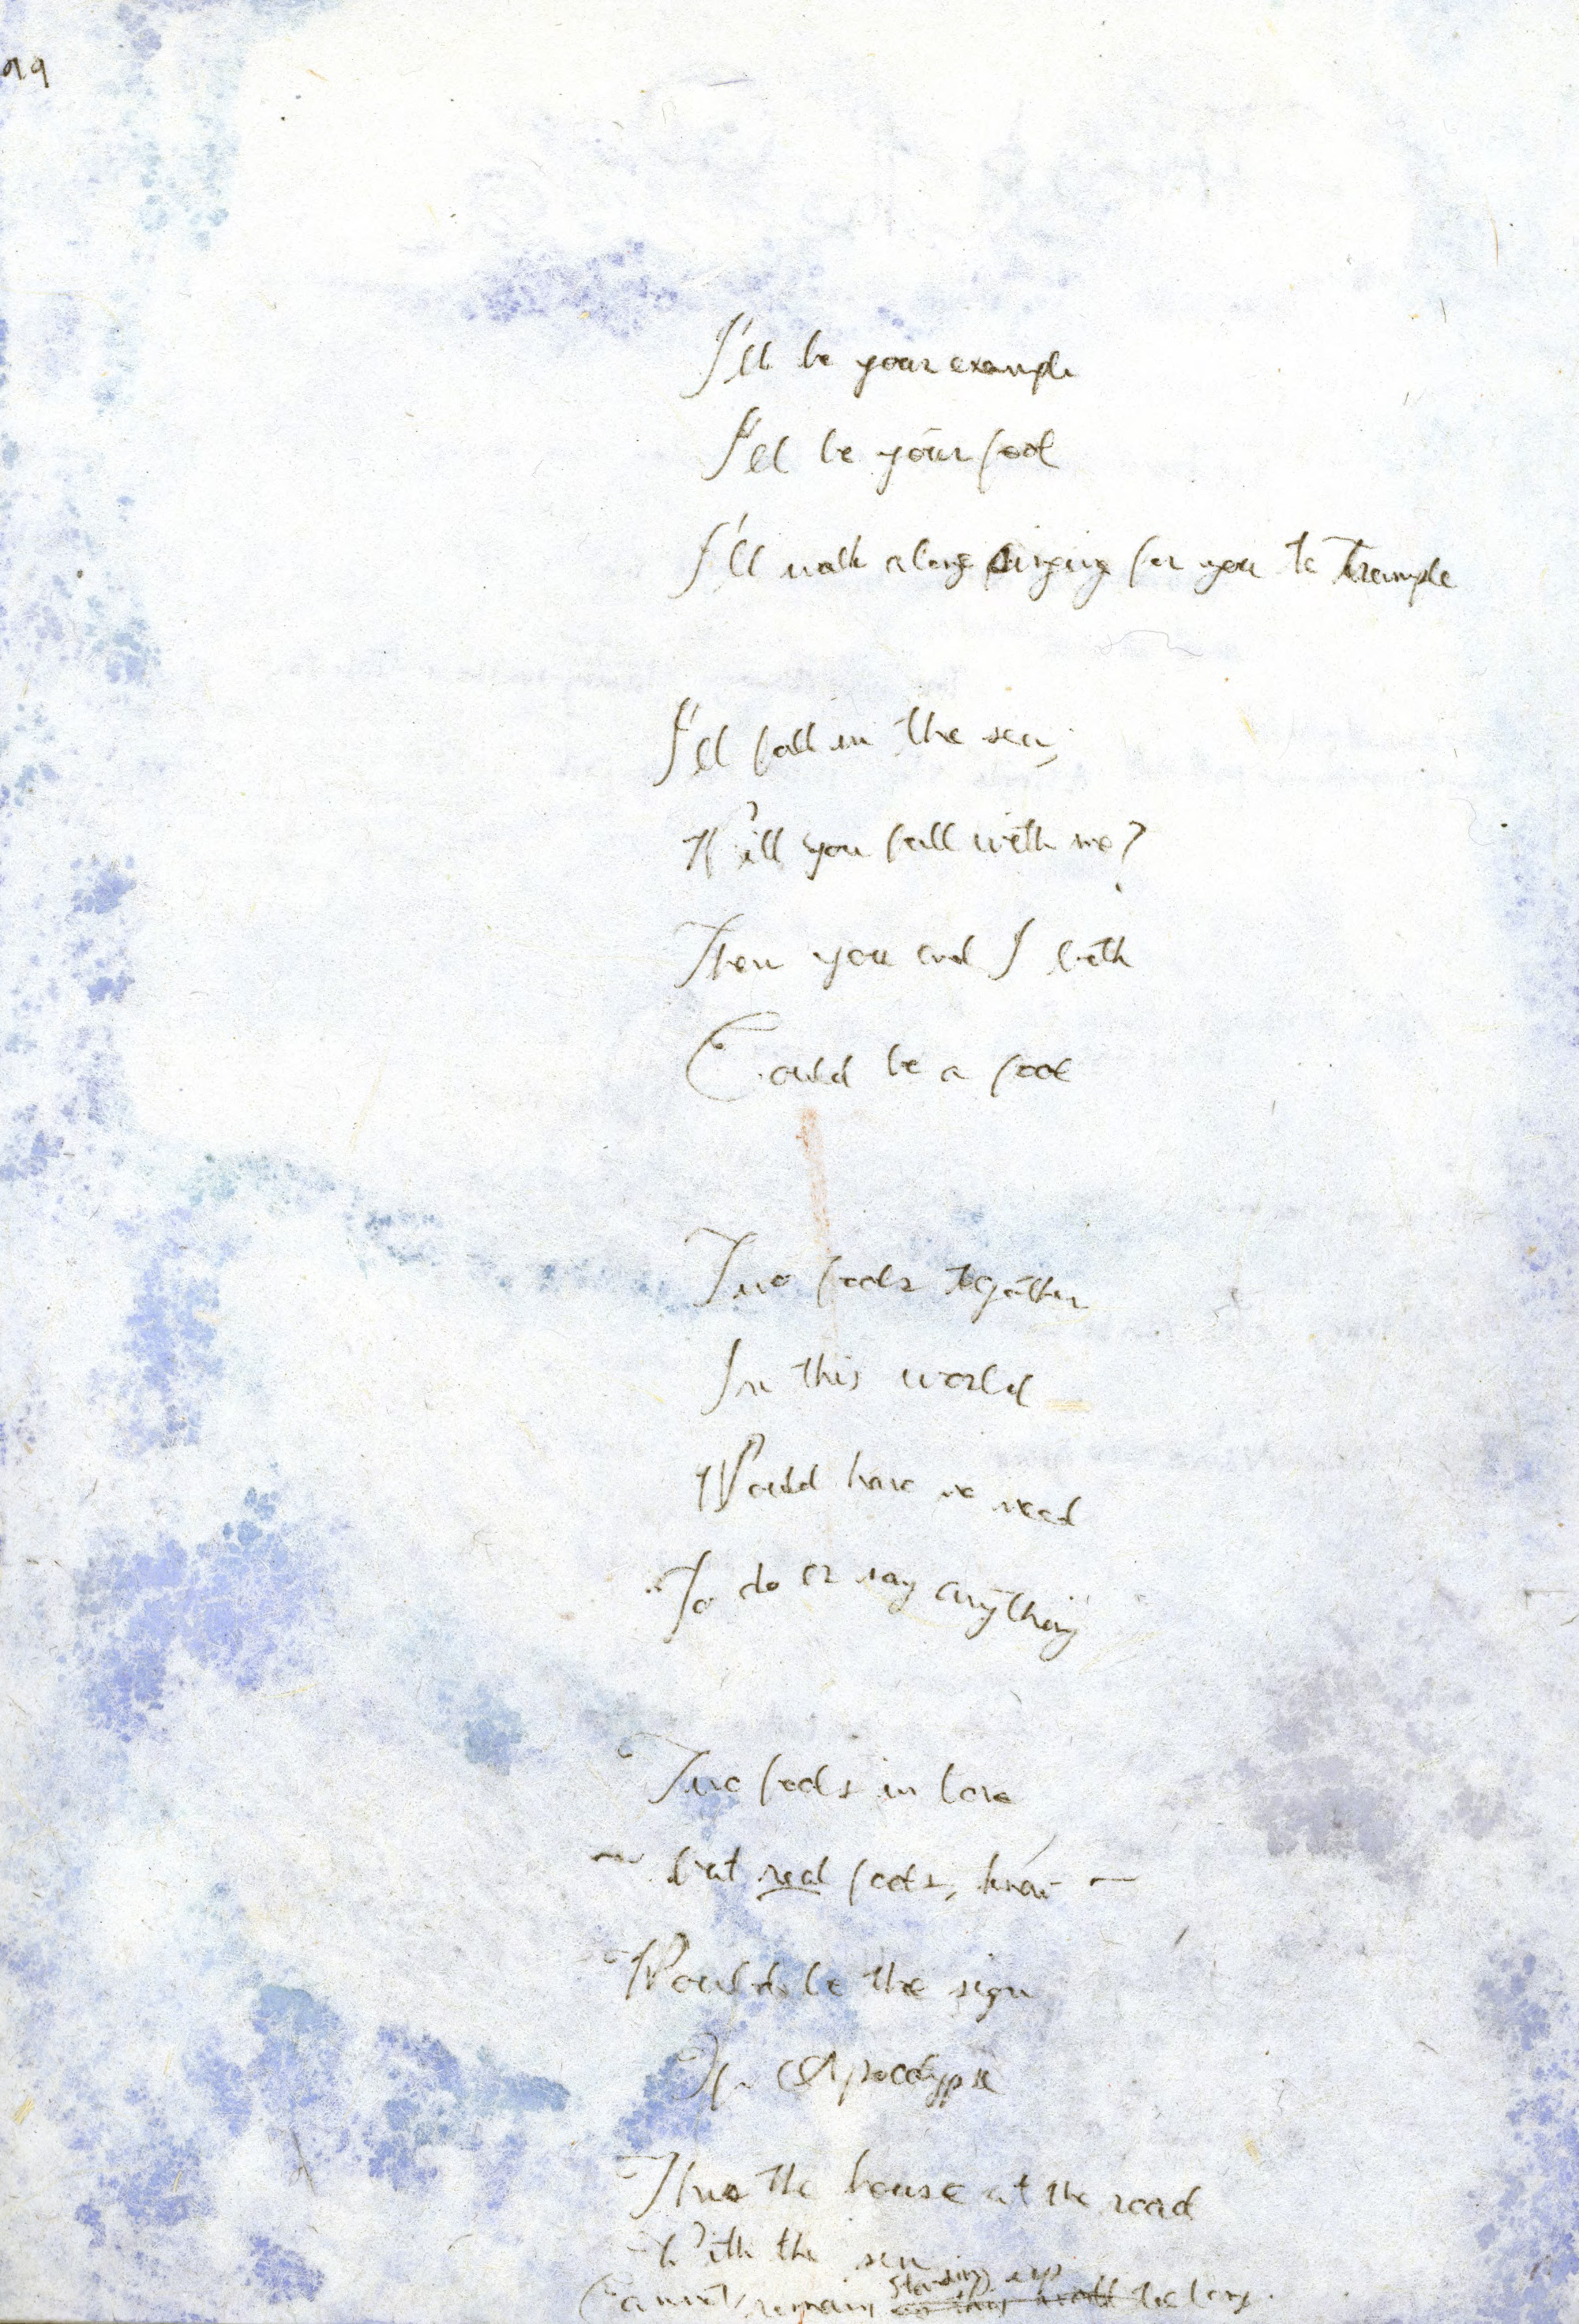 99
I'll be your example
I'll be your fool
I'll walk along singing for you to trample
I'll fall in the sea,
Will you fall with me?
Then you and I both
Could be a fool
Two fools together
In this world
Would have no need
To do or say anything
Two fools in love
~ but real fools, know —
Would be the sign
Of Apocalypse
Thus the house at the road
With the sea
Standing up
Cannot remain too long.